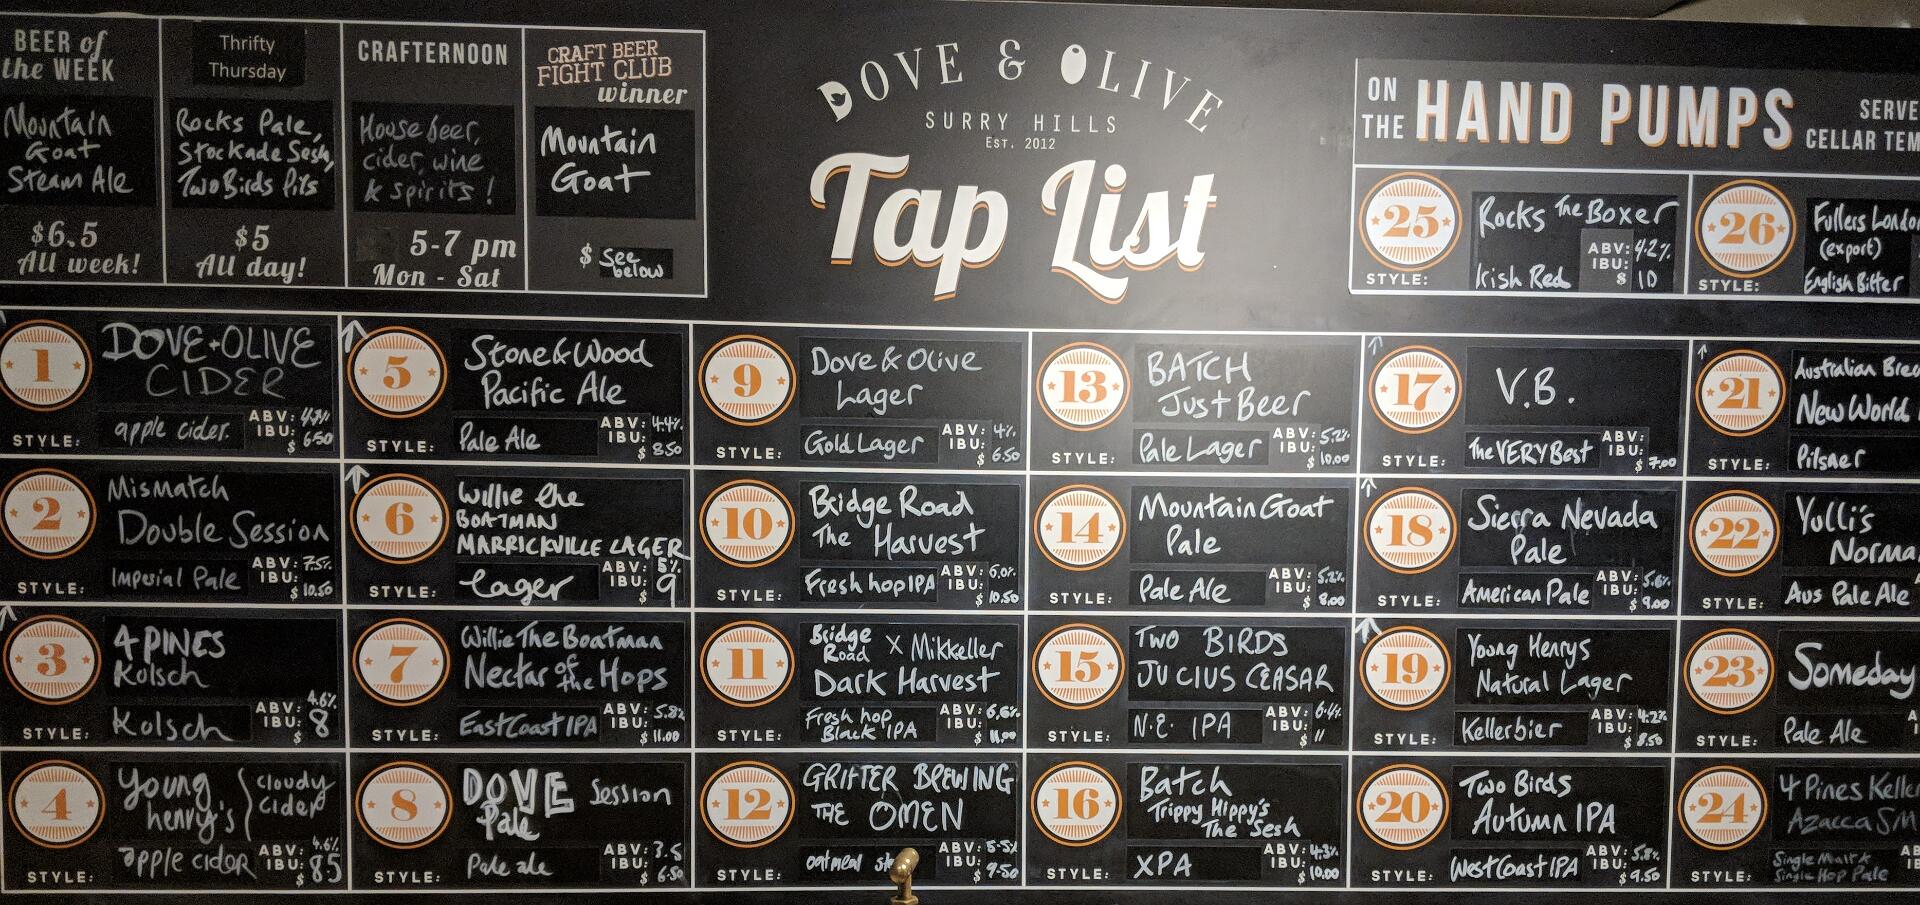 BEER of
the WEEK
Mountain
Goat
Steam Ale
$6.5
All week!
Thrifty
Thursday
Rocks Pale,
Stockade Sesh,
Two Birds Pils
$5
All day!
CRAFTERNOON
House beer,
cider, wine
& spirits!
5-7 pm
Mon - Sat
CRAFT BEER
FIGHT CLUB
winner
Mountain
Goat
$ See
below
DOVE & OLIVE
SURRY HILLS
EST. 2012
Tap List
ON
THE
HAND PUMPS
SERVE
CELLAR TEM
25
Rocks The Boxer
ABV: 4.2%
IBU:
STYLE: Irish Red $ 10
26
Fullers London
(export)
STYLE: English Bitter
1
DOVE + OLIVE
CIDER
ABV:
IBU:
STYLE: apple cider. $ 6.50
2
Mismatch
Double Session
ABV: 7.5%
IBU:
STYLE: Imperial Pale $ 10.50
3
4 PINES
Kolsch
ABV: 4.6%
IBU:
STYLE: Kolsch $ 8
4
young
henry's
cloudy
cider
ABV: 4.6%
IBU:
STYLE: apple cider $ 8.5
5
Stone & Wood
Pacific Ale
ABV: 4.4%
IBU:
STYLE: Pale Ale $ 8.50
6
Willie the
BOATMAN
MARRICKVILLE LAGER
ABV: 5%
IBU:
STYLE: Lager $ 9
7
Willie The Boatman
Nectar of the Hops
ABV: 5.8%
IBU:
STYLE: East Coast IPA $ 11.00
8
DOVE Session
Pale
ABV: 3.5
IBU:
STYLE: Pale ale $ 6.50
9
Dove & Olive
Lager
ABV: 4%
IBU:
STYLE: Gold Lager $ 6.50
10
Bridge Road
The Harvest
ABV: 6.0%
IBU:
STYLE: Fresh hop IPA $ 10.50
11
Bridge
Road X Mikkeller
Dark Harvest
ABV: 6.6%
IBU:
STYLE: Fresh hop
Black IPA $ 11.00
12
GRIFTER BREWING
THE OMEN
ABV: 5.5%
IBU:
STYLE: oatmeal $ 9.50
13
BATCH
Just Beer
ABV: 5.2%
IBU:
STYLE: Pale Lager $ 10.00
14
Mountain Goat
Pale
ABV: 5.2%
IBU:
STYLE: Pale Ale $ 8.00
15
TWO BIRDS
JUCIUS CEASAR
ABV: 6.4%
IBU:
STYLE: N.E. IPA $ 11
16
Batch
Trippy Hippy's
The Sesh
ABV: 4.3%
IBU:
STYLE: XPA $ 10.00
17
V.B.
ABV:
IBU:
STYLE: The VERY Best $ 7.00
18
Sierra Nevada
Pale
ABV: 5.6%
IBU:
STYLE: American Pale $ 9.00
19
Young Henrys
Natural Lager
ABV: 4.2%
IBU:
STYLE: Kellerbier $ 8.50
20
Two Birds
Autumn IPA
ABV: 5.8%
IBU:
STYLE: West Coast IPA $ 9.50
21
Australian Brew
New World
STYLE: Pilsner
22
Yulli's
Norma
STYLE: Aus Pale Ale
23
Someday
STYLE: Pale Ale
24
4 Pines Keller
Azacca SM
STYLE: Single Malt &
Single Hop Pale